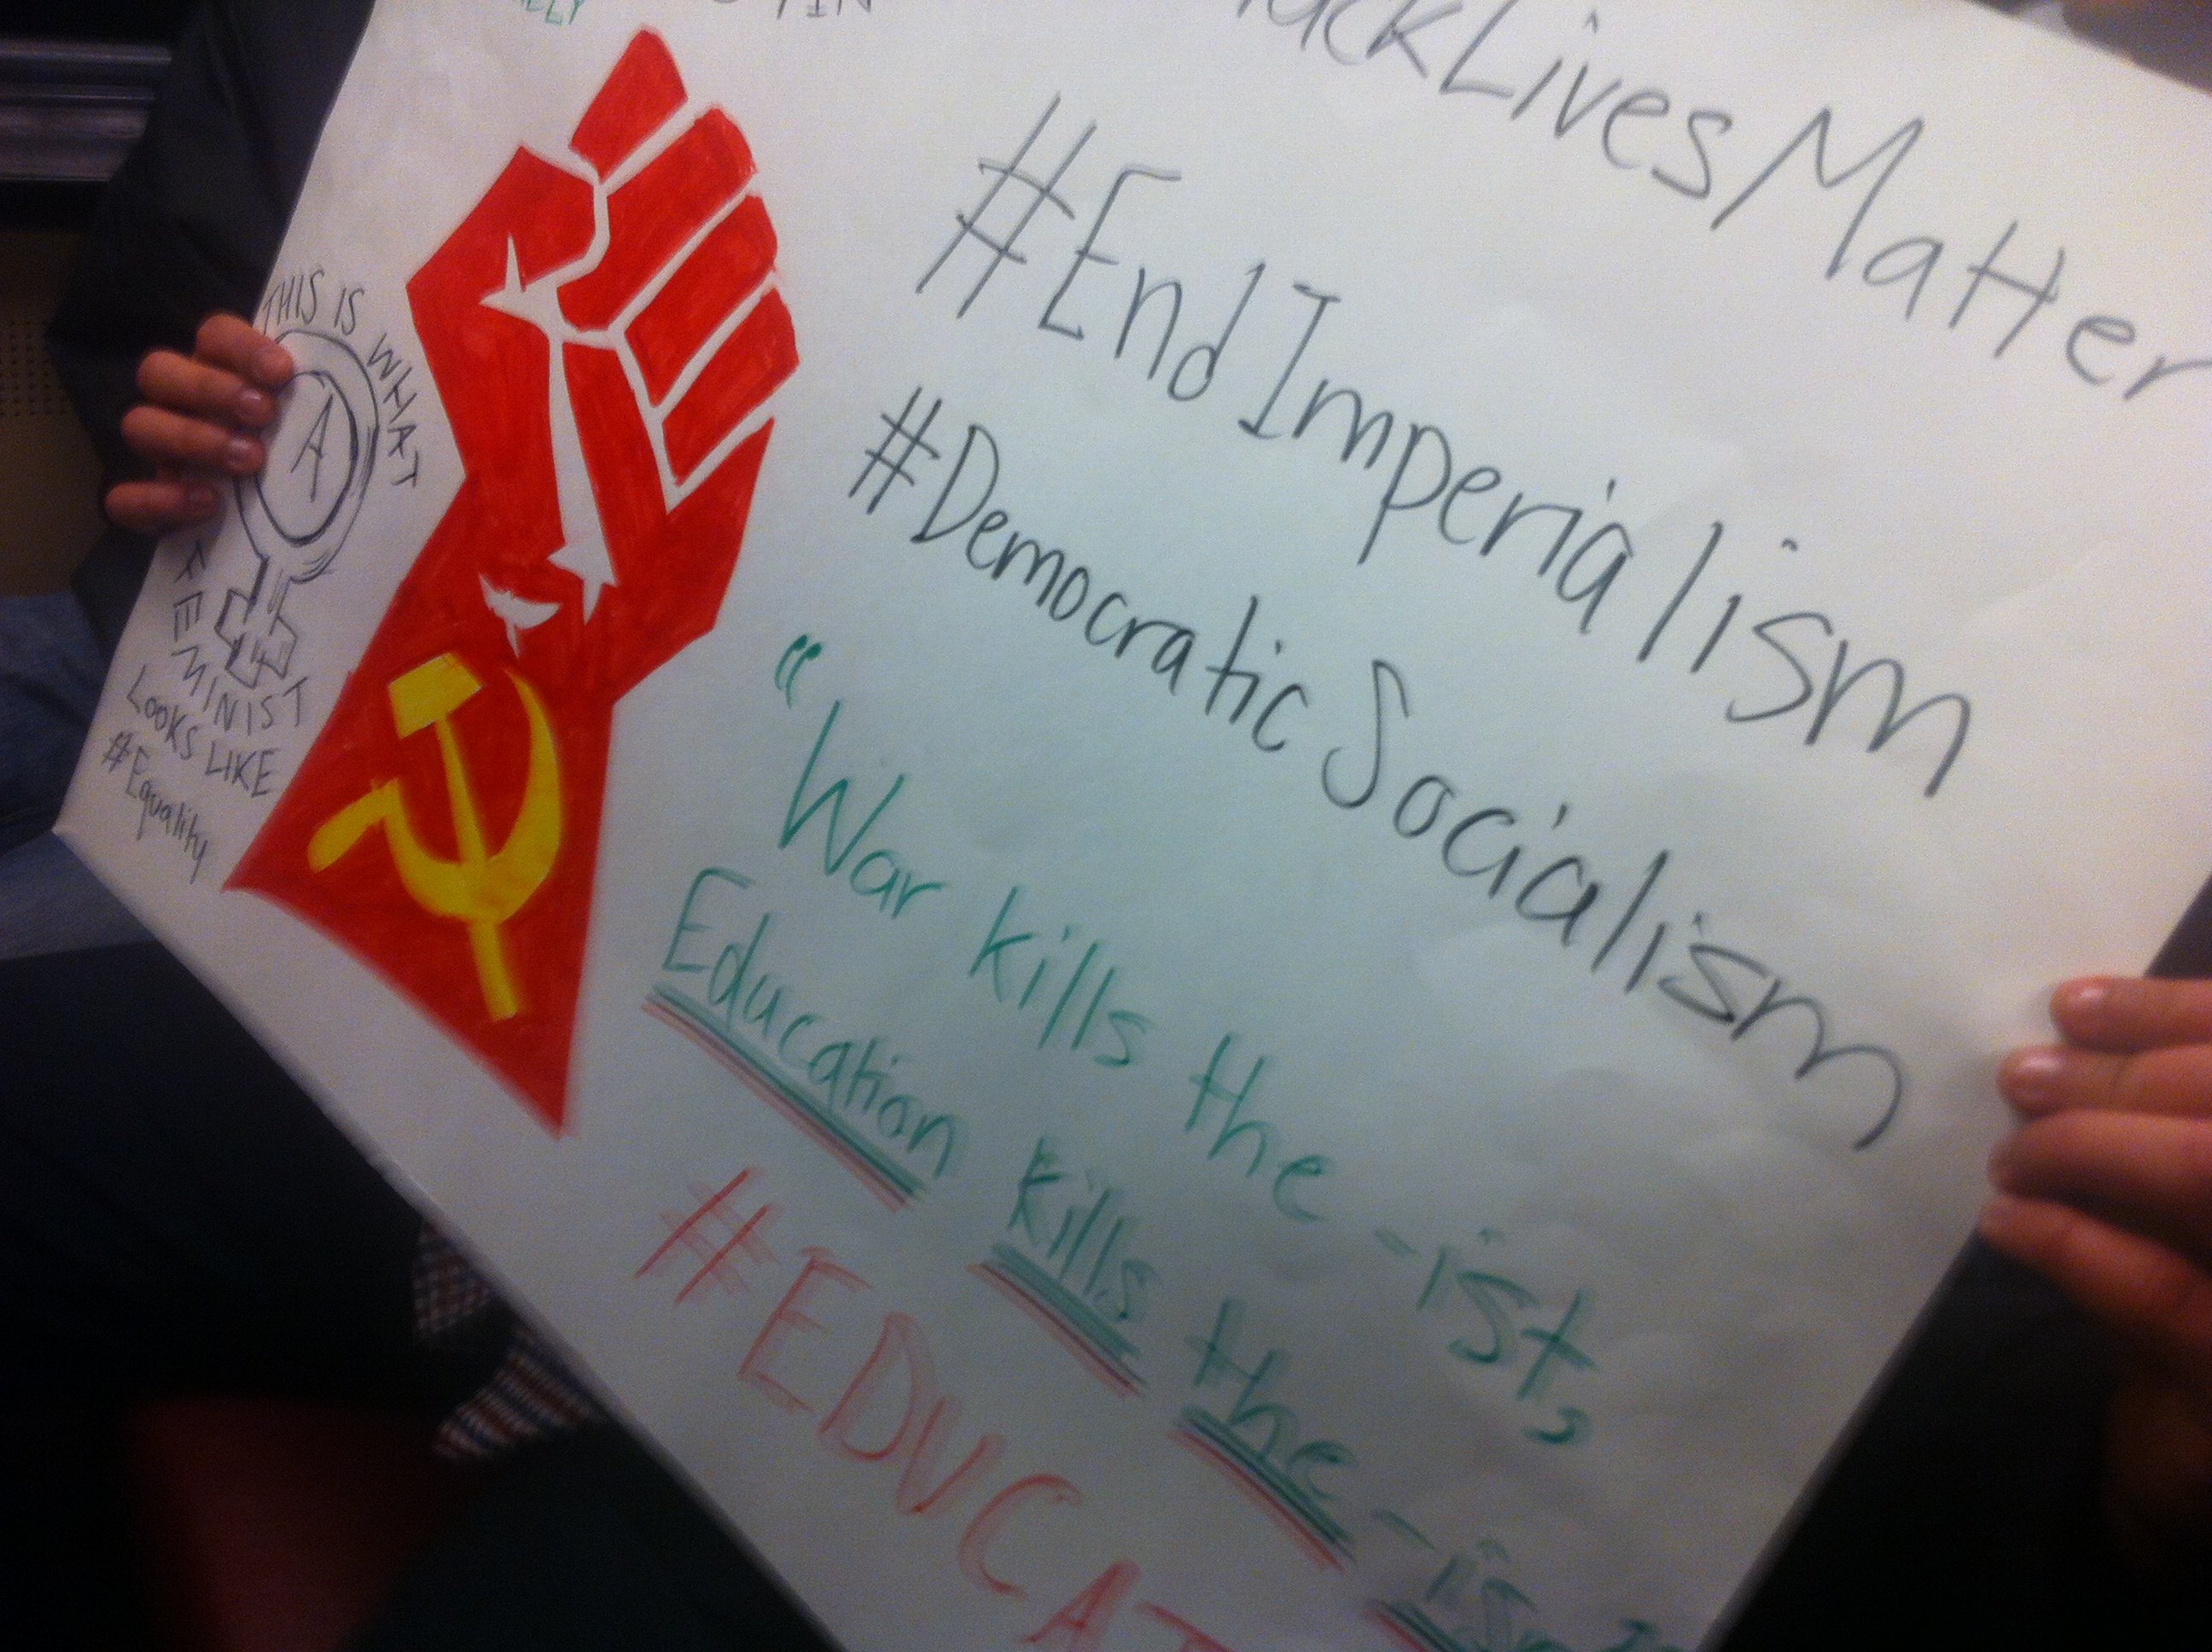 lackLivesMatter
#EndImperialism
#DemocraticSocialism
"War kills the -ist,
Education kills the -ism
#EDUCAT
THIS IS WHAT
A
FEMINIST
LOOKS LIKE
#Equality